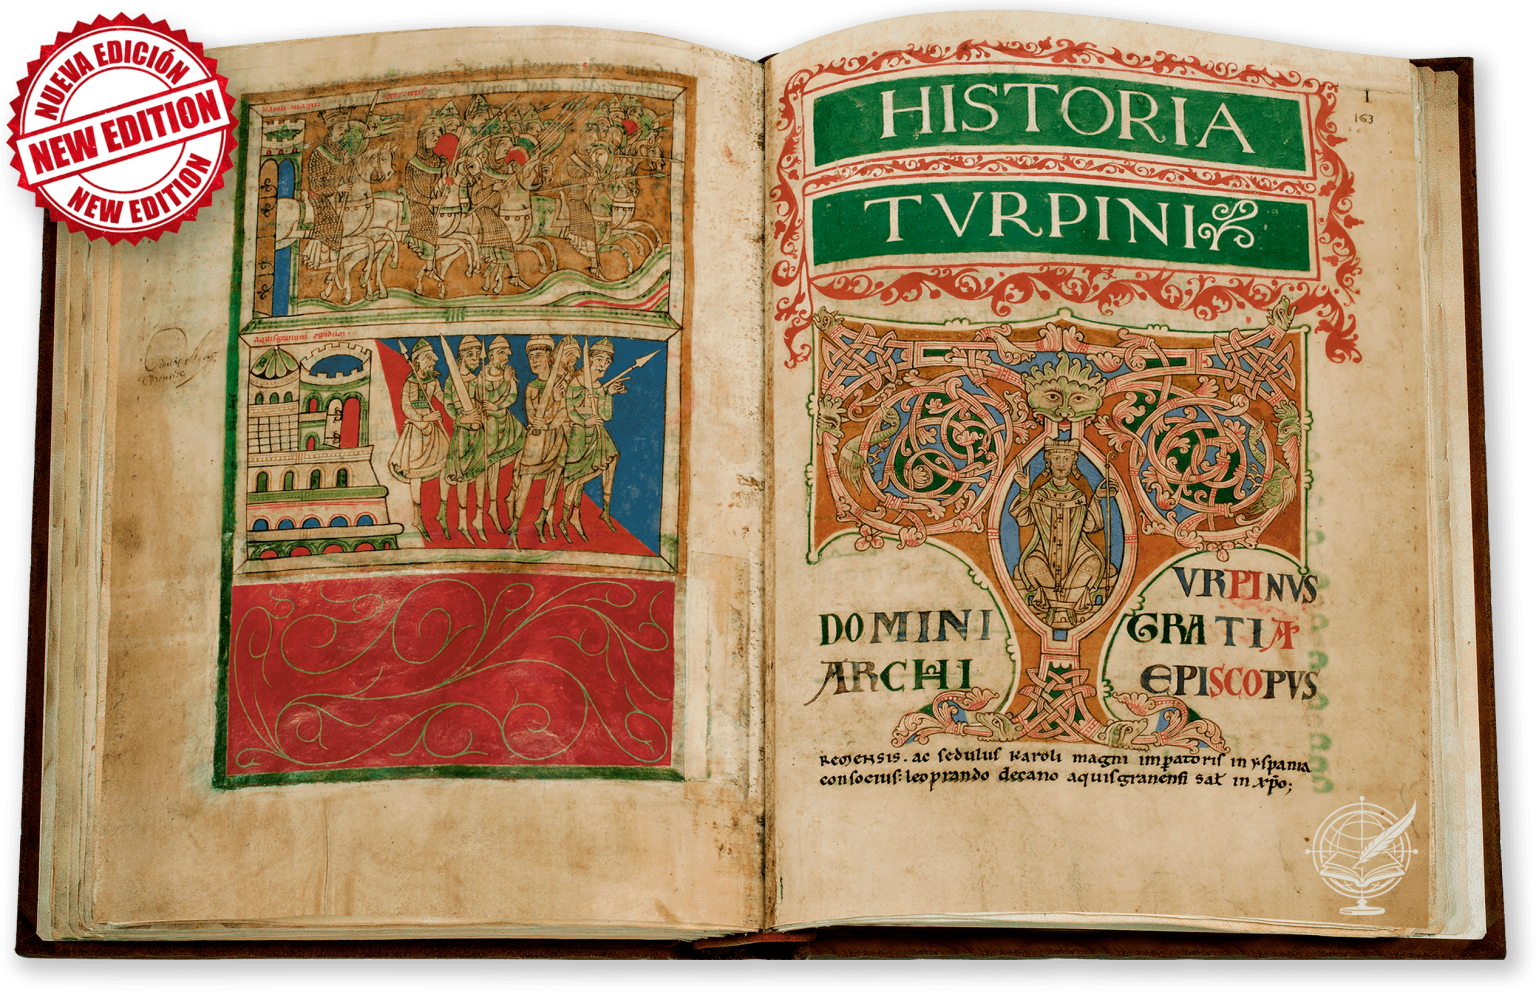 NUEVA EDICIÓN
NEW EDITION
NEW EDITION
Karoli magni
aquisgranum opidum.
HISTORIA
TVRPINI
I
163
VRPINVS
DOMINI GRATIA
ARCHI EPISCOPVS
REMENSIS. ac sedulus Karoli magni impatoris in yspania
consocius: leoprando decano aquisgranensi sat in xpo;